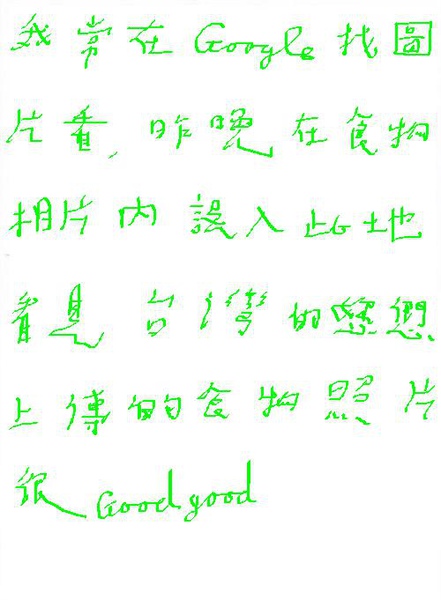 我常在 Google 找圖
片看, 昨晚在食物
相片內誤入此地
看是台灣的您們
上傳的食物照片
很 Good good